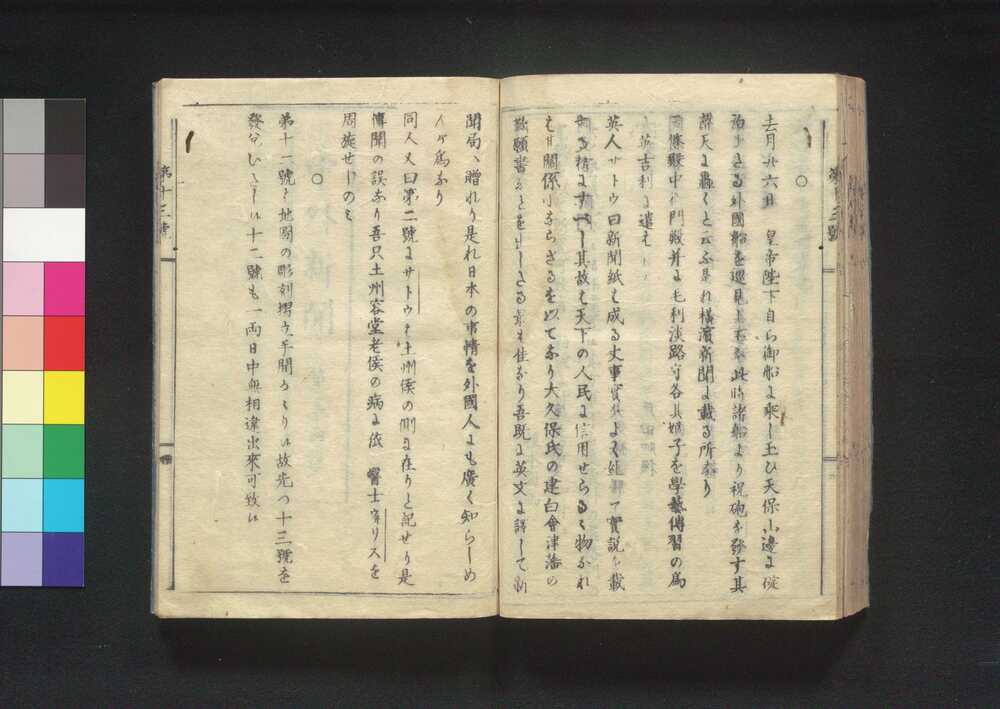 第十三號
○
去月廿六日 皇帝陛下自ら御船に乘し玉ひ天保山邊に碇
泊する外國船を巡見し玉ふ此時諸船より祝砲を發す其
聲天に轟くと云ふ是れ横濱新聞に載る所なり
殿中 門殿并に毛利淡路守各其嫡子を學藝傳習の爲
英吉利に遣せり
英人サトウ曰新聞紙を成る丈事實をよく糺して實説を載
其故は天下の人民に信用せらるゝ物なれ
關係小ならざるをもてなり大久保氏の建白會津藩の
歎願書などを出しさる最も佳なり吾既に英文に譯して新
聞局へ贈れり是れ日本の事情を外國人にも廣く知らしめ
んが爲なり
同人又曰第二號にサトウを土州侯の側に在りと記せり是
傳聞の誤なり吾只土州容堂老侯の病に依 醫士ウリスを
周旋せしのみ
○
第十一號は地圖の彫刻摺立手間とり候故先つ十三號を
發兌いたし候十二號も一兩日中無相違出來可致候
第十三號